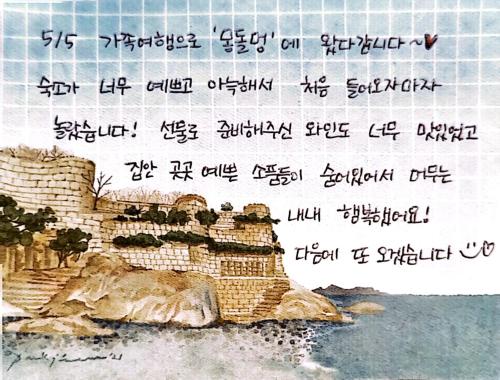 5/5 가족여행으로 '몽돌덩'에 왔다갑니다~♥
숙소가 너무 예쁘고 아늑해서 처음 들어오자마자
놀랐습니다! 선물로 준비해주신 와인도 너무 맛있었고
집안 곳곳 예쁜 소품들이 숨어있어서 머무는
내내 행복했어요!
다음에 또 오겠습니다 ☺♡